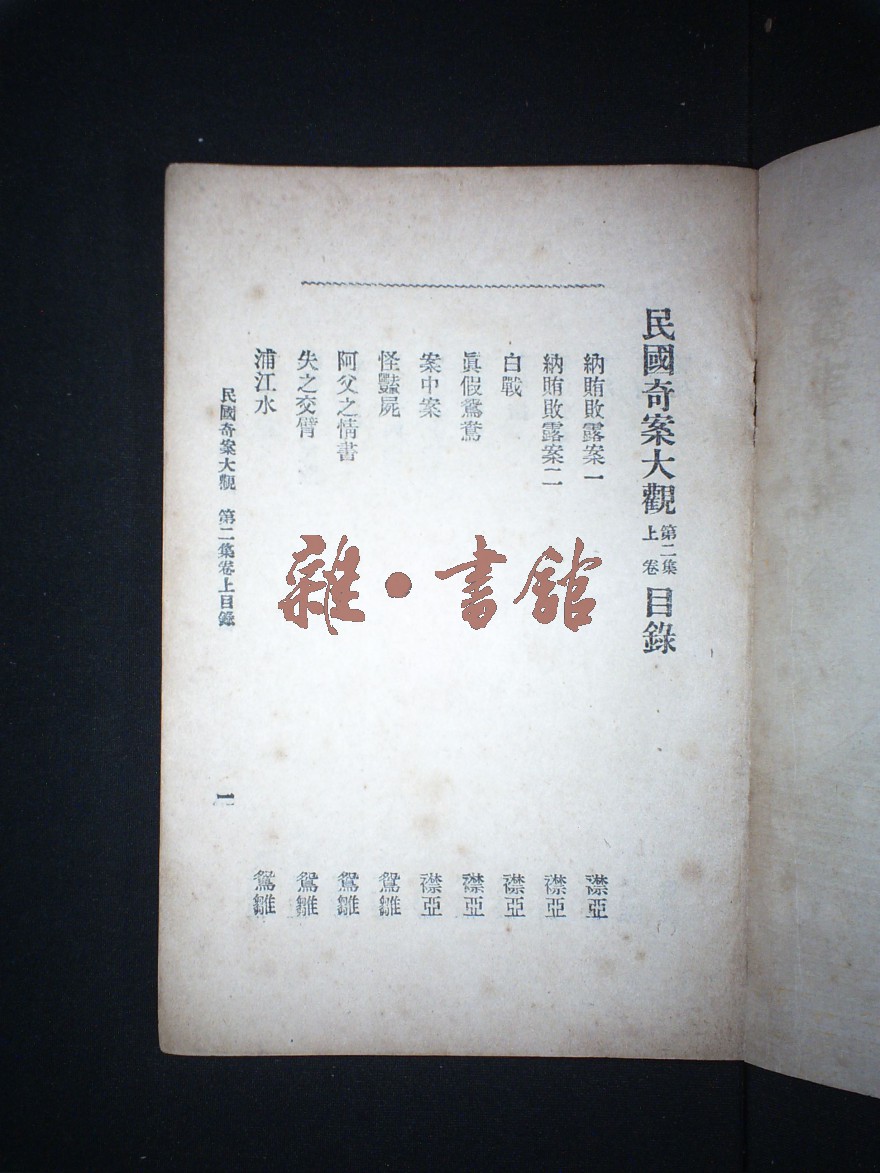 民國奇案大觀 第二集上卷 目錄
納賄敗露案一 襟亞
納賄敗露案二 襟亞
白戰 襟亞
眞假鴛鴦 襟亞
案中案 襟亞
怪豔屍 鴛雛
阿父之情書 鴛雛
失之交臂 鴛雛
浦江水 鴛雛
民國奇案大觀 第二集卷上目錄 一
雜·書館